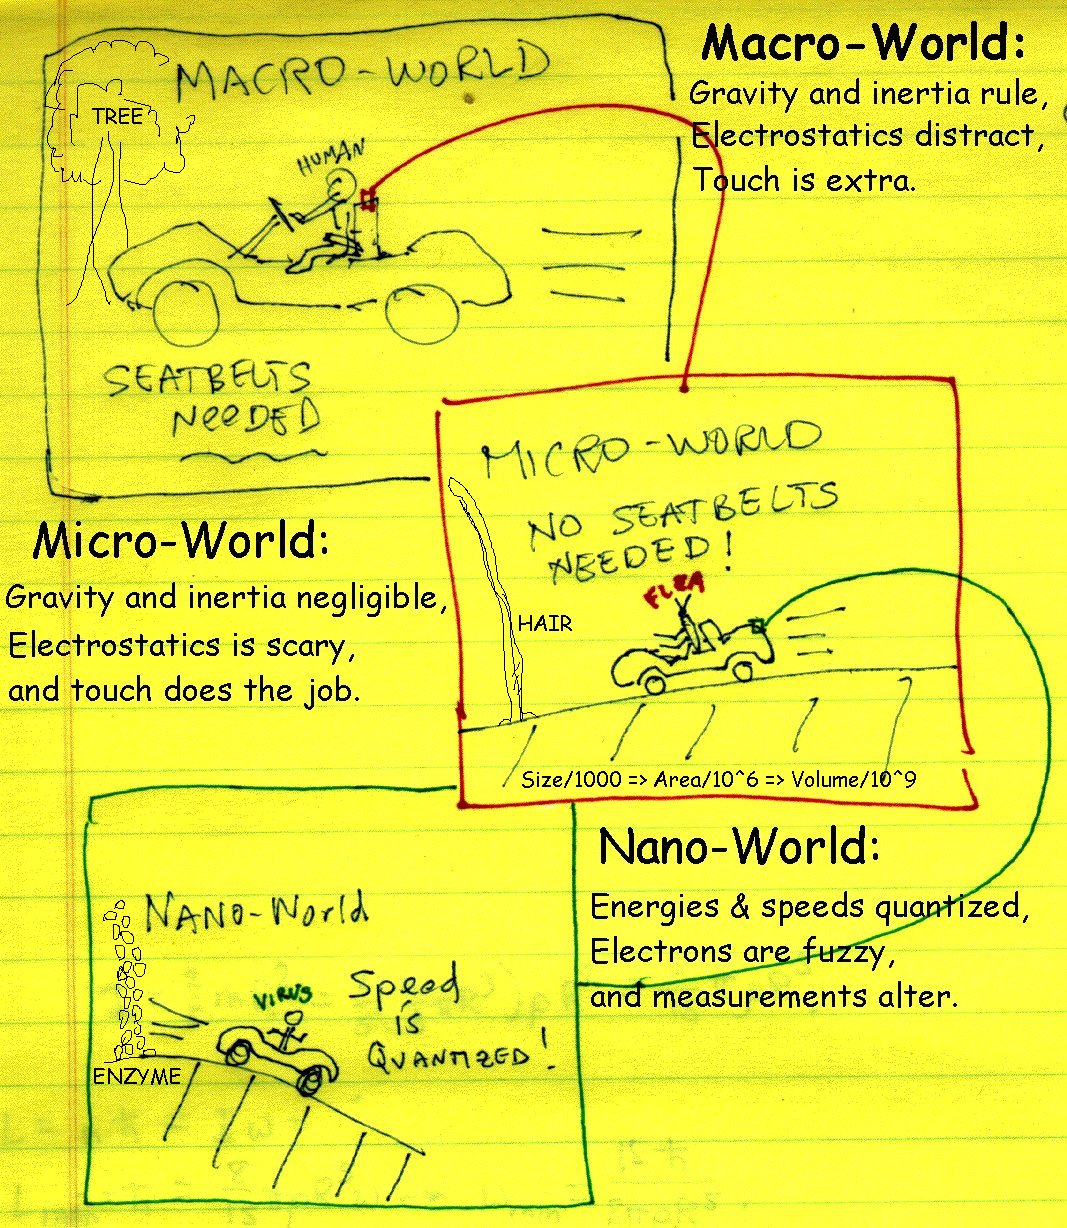 MACRO-WORLD
TREE
HUMAN
SEATBELTS
NEEDED
Macro-World:
Gravity and inertia rule,
Electrostatics distract,
Touch is extra.
MICRO-WORLD
NO SEATBELTS
NEEDED!
FLEA
HAIR
Size/1000 => Area/10^6 => Volume/10^9
Micro-World:
Gravity and inertia negligible,
Electrostatics is scary,
and touch does the job.
NANO-World
VIRUS
Speed
is
QUANTIZED!
ENZYME
Nano-World:
Energies & speeds quantized,
Electrons are fuzzy,
and measurements alter.